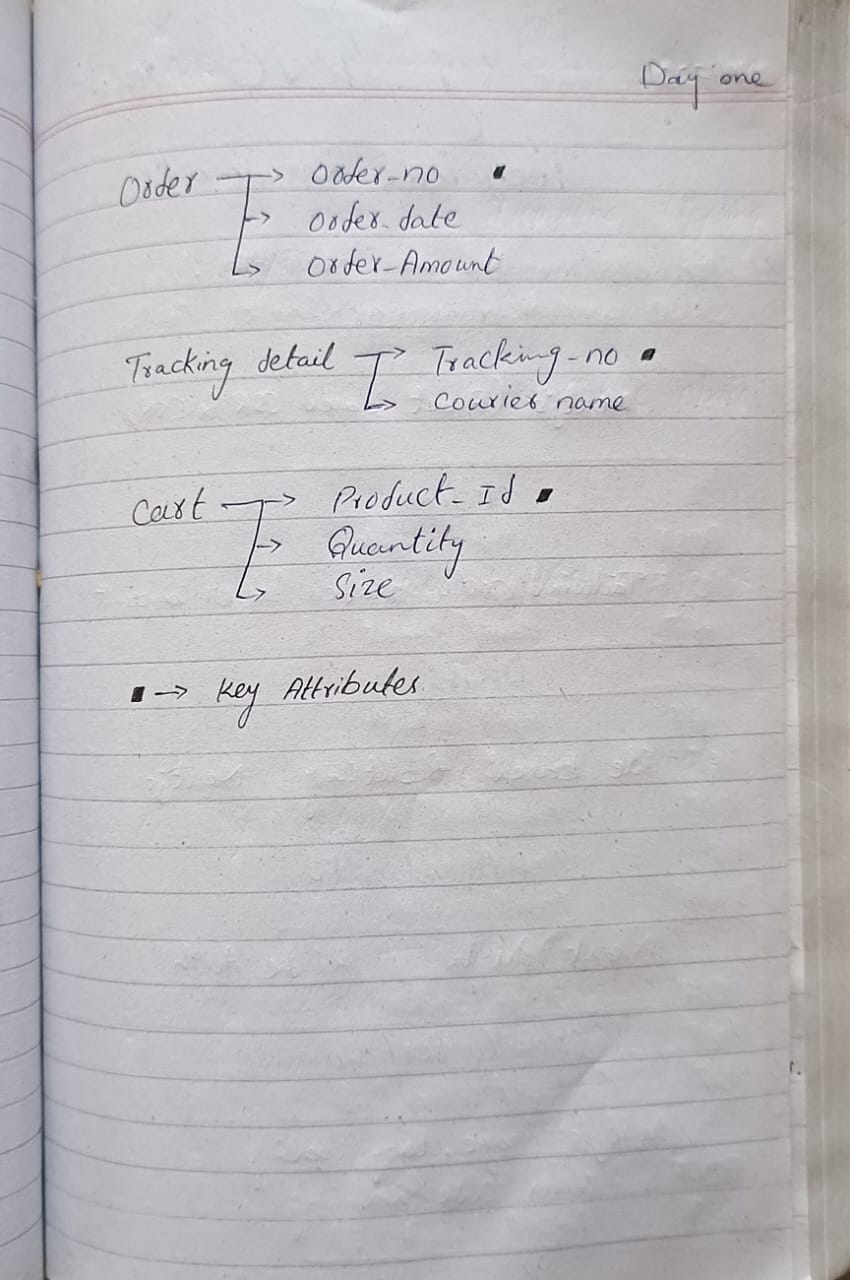 Day one
Order → Order-no ▪
→ Order date
→ Order-Amount
Tracking detail → Tracking-no ▪
→ Courier name
Cart → Product-Id ▪
→ Quantity
→ Size
▪ → Key Attributes